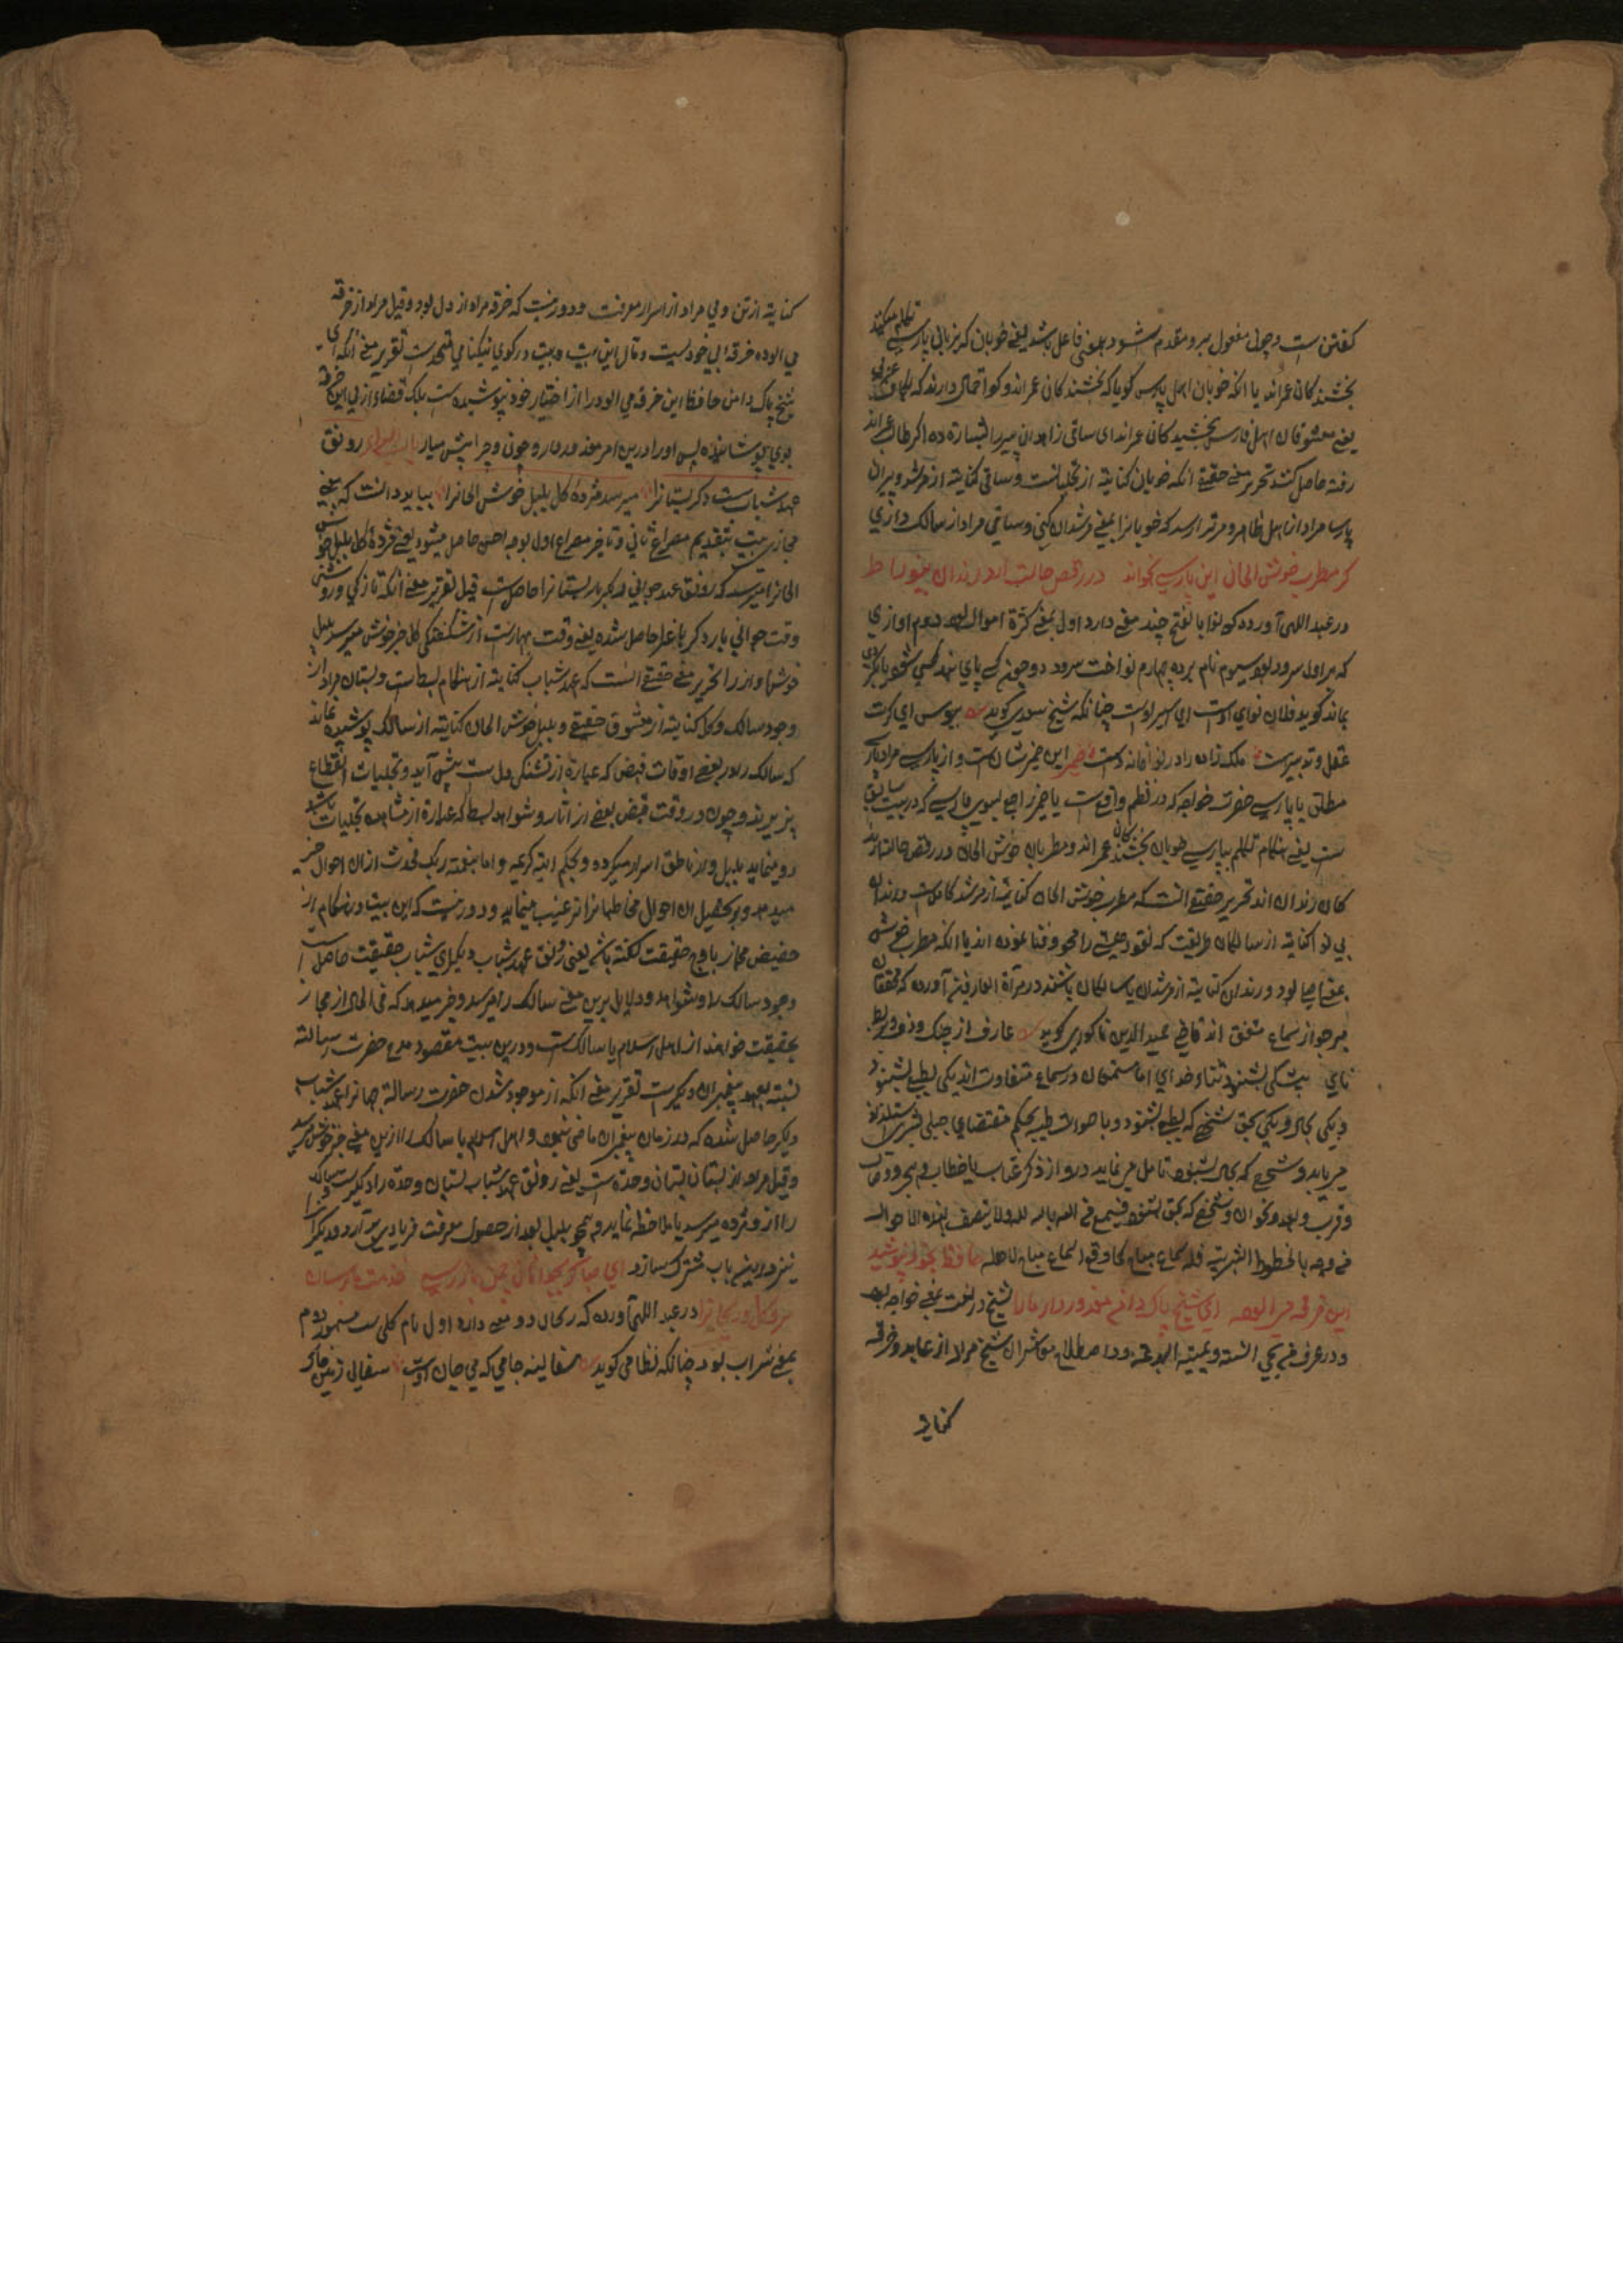 کفتن ست و چون مفعول برو مقدم شود بمعنی فاعل باشد یعنی خوبان که بزبانی پارسی تکلم میکنند
بخشندکان عمراند یا انکه خوبان اهل پارس کویا که بخشندکان عمراند و کو
یعنی معشوقان اهل فارس بخشیدکان عمراند ای ساقی زاهدان پیر را بشارة ده اکر طالب عمراند
رفته حاصل کنند تحریر معنی حقیقی انکه خوبان کنایة از تجلیات ست و ساقی کنایة از مرشد و پیران
پارسا مراد از اهل ظاهر و مرتر ارسد که خوبانرا بمعنی مرشدان کنی و ساقی مراد از سالک داری
کر مطرب خوش الحان این پارسی بخواند در رقص حالت ارد رندان بینوا را ط
در عبد اللهی آورده که نوا بالفتح چند معنی دارد اول بمعنی کثرة اموال بود دوم اوازی
که مراول سرود بود سیوم نام پرده چهارم نواخت سرود
بماند کوید فلان نوای اوست ای اسیر اوست چنانکه شیخ سعدی کوید
عقل و تدبیرست ملک زاده را در نوا خانه دست این ضمیر شان ست و از پارسی مراد
مطلق یا پارسی حضرت خواجه که در نظم واقع ست یا ضمیر راجع بسوی پارسی که در بیت سابق
ست یعنی هنکام تکلم بپارسی خوبان بخشندکان عمراند و مطربان خوش الحان در رقص حالت
کان رندان اند تحریر حقیقی انست که مطرب خوش الحان کنایة از مرشد کامل ست و رندان
بی نوا کنایة از سالکان طریقت که نقود هستی را محو و فنا نموده اند یا انکه مطرب خوش
بمعنی بود و رندان کنایة از مرشدان یا سالکان باشند در مرآة العارفین آورده که محققان
بر جواز سماع متفق اند قاضی حمید الدین ناکوری کوید عارف از چنک و دف و بربط
نای بیشکی بشنود ثناء خدای اما مستمعان در سماع متفاوت اند یکی بطبع بشنود
و یکی بحال و یکی بحق شخصی که بطبع بشنود و باصوات طیبه بحکم مقتضای جبلی بشری
می یابد و شخصی که بحال بشنود تامل می نماید در واز ذکر عتاب یا خطاب و هجر و وصال
و قرب و بعد و شخصی که بحق بشنود فیسمع من الله بالله لله و لا یتصف بهذه الاحوال
حافظ بخود نپوشید
این خرقه می الود ای شیخ پاک دامن معذور دار مارا شیخ در لغت بمعنی خواجه بود
و در عرف من یحیی السنة و یمیت البدعة و در اصطلاح شیخ مراد از عابد و خرقه
کنایة
کنایة از تن و می مراد از اسرار معرفت و دور نیست که خرقه مراد از دل بود و قیل مراد از خرقه
می الوده خرقه ابی خودیست و مآل این بیت و بیت در کوی نیکنامی متحدست تقریر معنی انکه ای
شیخ پاک دامن حافظ این خرقه می الود را از اختیار خود نپوشیده ست بلکه قضاء ازلی این خرقه
بوی پوشانیده پس او را درین امر معذور دار و چون و چرا پیش میار رونق
عهد شبابست دکر بستانرا میرسد مژده کل بلبل خوش الحانرا بباید دانست که معنی
مجازی بیت بتقدیم مصراع ثانی و تاخیر مصراع اول بوجه احسن حاصل میشود یعنی مژدهٔ کل بلبل خوش
الحانرا میرسد که رونق عهد جوانی دکر بار بستانرا حاصل ست قیل تقریر معنی انکه تازکی و روشنی
وقت جوانی بار دکر باغرا حاصل شده یعنی وقت بهارست از شکفتکی کل خبر خوش میرسد بلبل
خوش اواز را تحریر معنی حقیقی انست که عهد شباب کنایة از هنکام بسط است و بستان مراد از
وجود سالک و کل کنایة از معشوق حقیقی و بلبل خوش الحان کنایة از سالک پوشیده نماند
که سالک را در بعضی اوقات قبض که عبارة از تشنکی دل ست پیش آید و تجلیات انقطاع
پذیرند و چون در وقت قبض بعضی از آثار و شواهد بسط که عبارة از مشاهده تجلیات باشد
رو مینماید بلبل ناطق اسرار میکرده و بحکم ایة کریمه و اما بنعمة ربک فحدث ازان احوال خبر
میدهد و بتحصیل ان احوال مخاطبانرا ترغیب مینماید و دور نیست که این بیت در هنکام از
حضیض مجاز باوج حقیقت کفته باشد یعنی رونق عهد شباب دیکر ای شباب حقیقت حاصل
وجود سالک را و شواهد و دلایل برین معنی سالک را میرسد و خبر میدهد که فی الحال از مجاز
بحقیقت خواهند از اهل اسلام یا سالک ست و درین بیت مقصود مدح حضرت رسالة
نسبة بعهد پیغمبران دیکرست تقریر معنی انکه از موجود شدن حضرت رسالة جهانرا عهد شباب
دیکر حاصل شده که در زمان پیغمبران ماضی نبود و اهل اسلام یا سالک را ازین معنی خبر خوش میرسد
و قیل مراد از بستان بستان وحدة ست یعنی رونق عهد شباب بستان وحدة را دکرست سالک
را از و مژده میرسد یا ملاحظه نماید و همچو بلبل بعد از حصول معرفت فریاد بر می آرد و دیکرانرا
نیز درین باب مشترک سازد ای صبا کر بجوانان چمن باز رسی خدمت ما برسان
سرو و کل و ریحانرا در عبد اللهی آورده که ریحان دو معنی دارد اول نام کلی ست مشهور دوم
بمعنی شراب بود چنانکه نظامی کوید سفالینه جامی که می جان اوست سفالی زمین